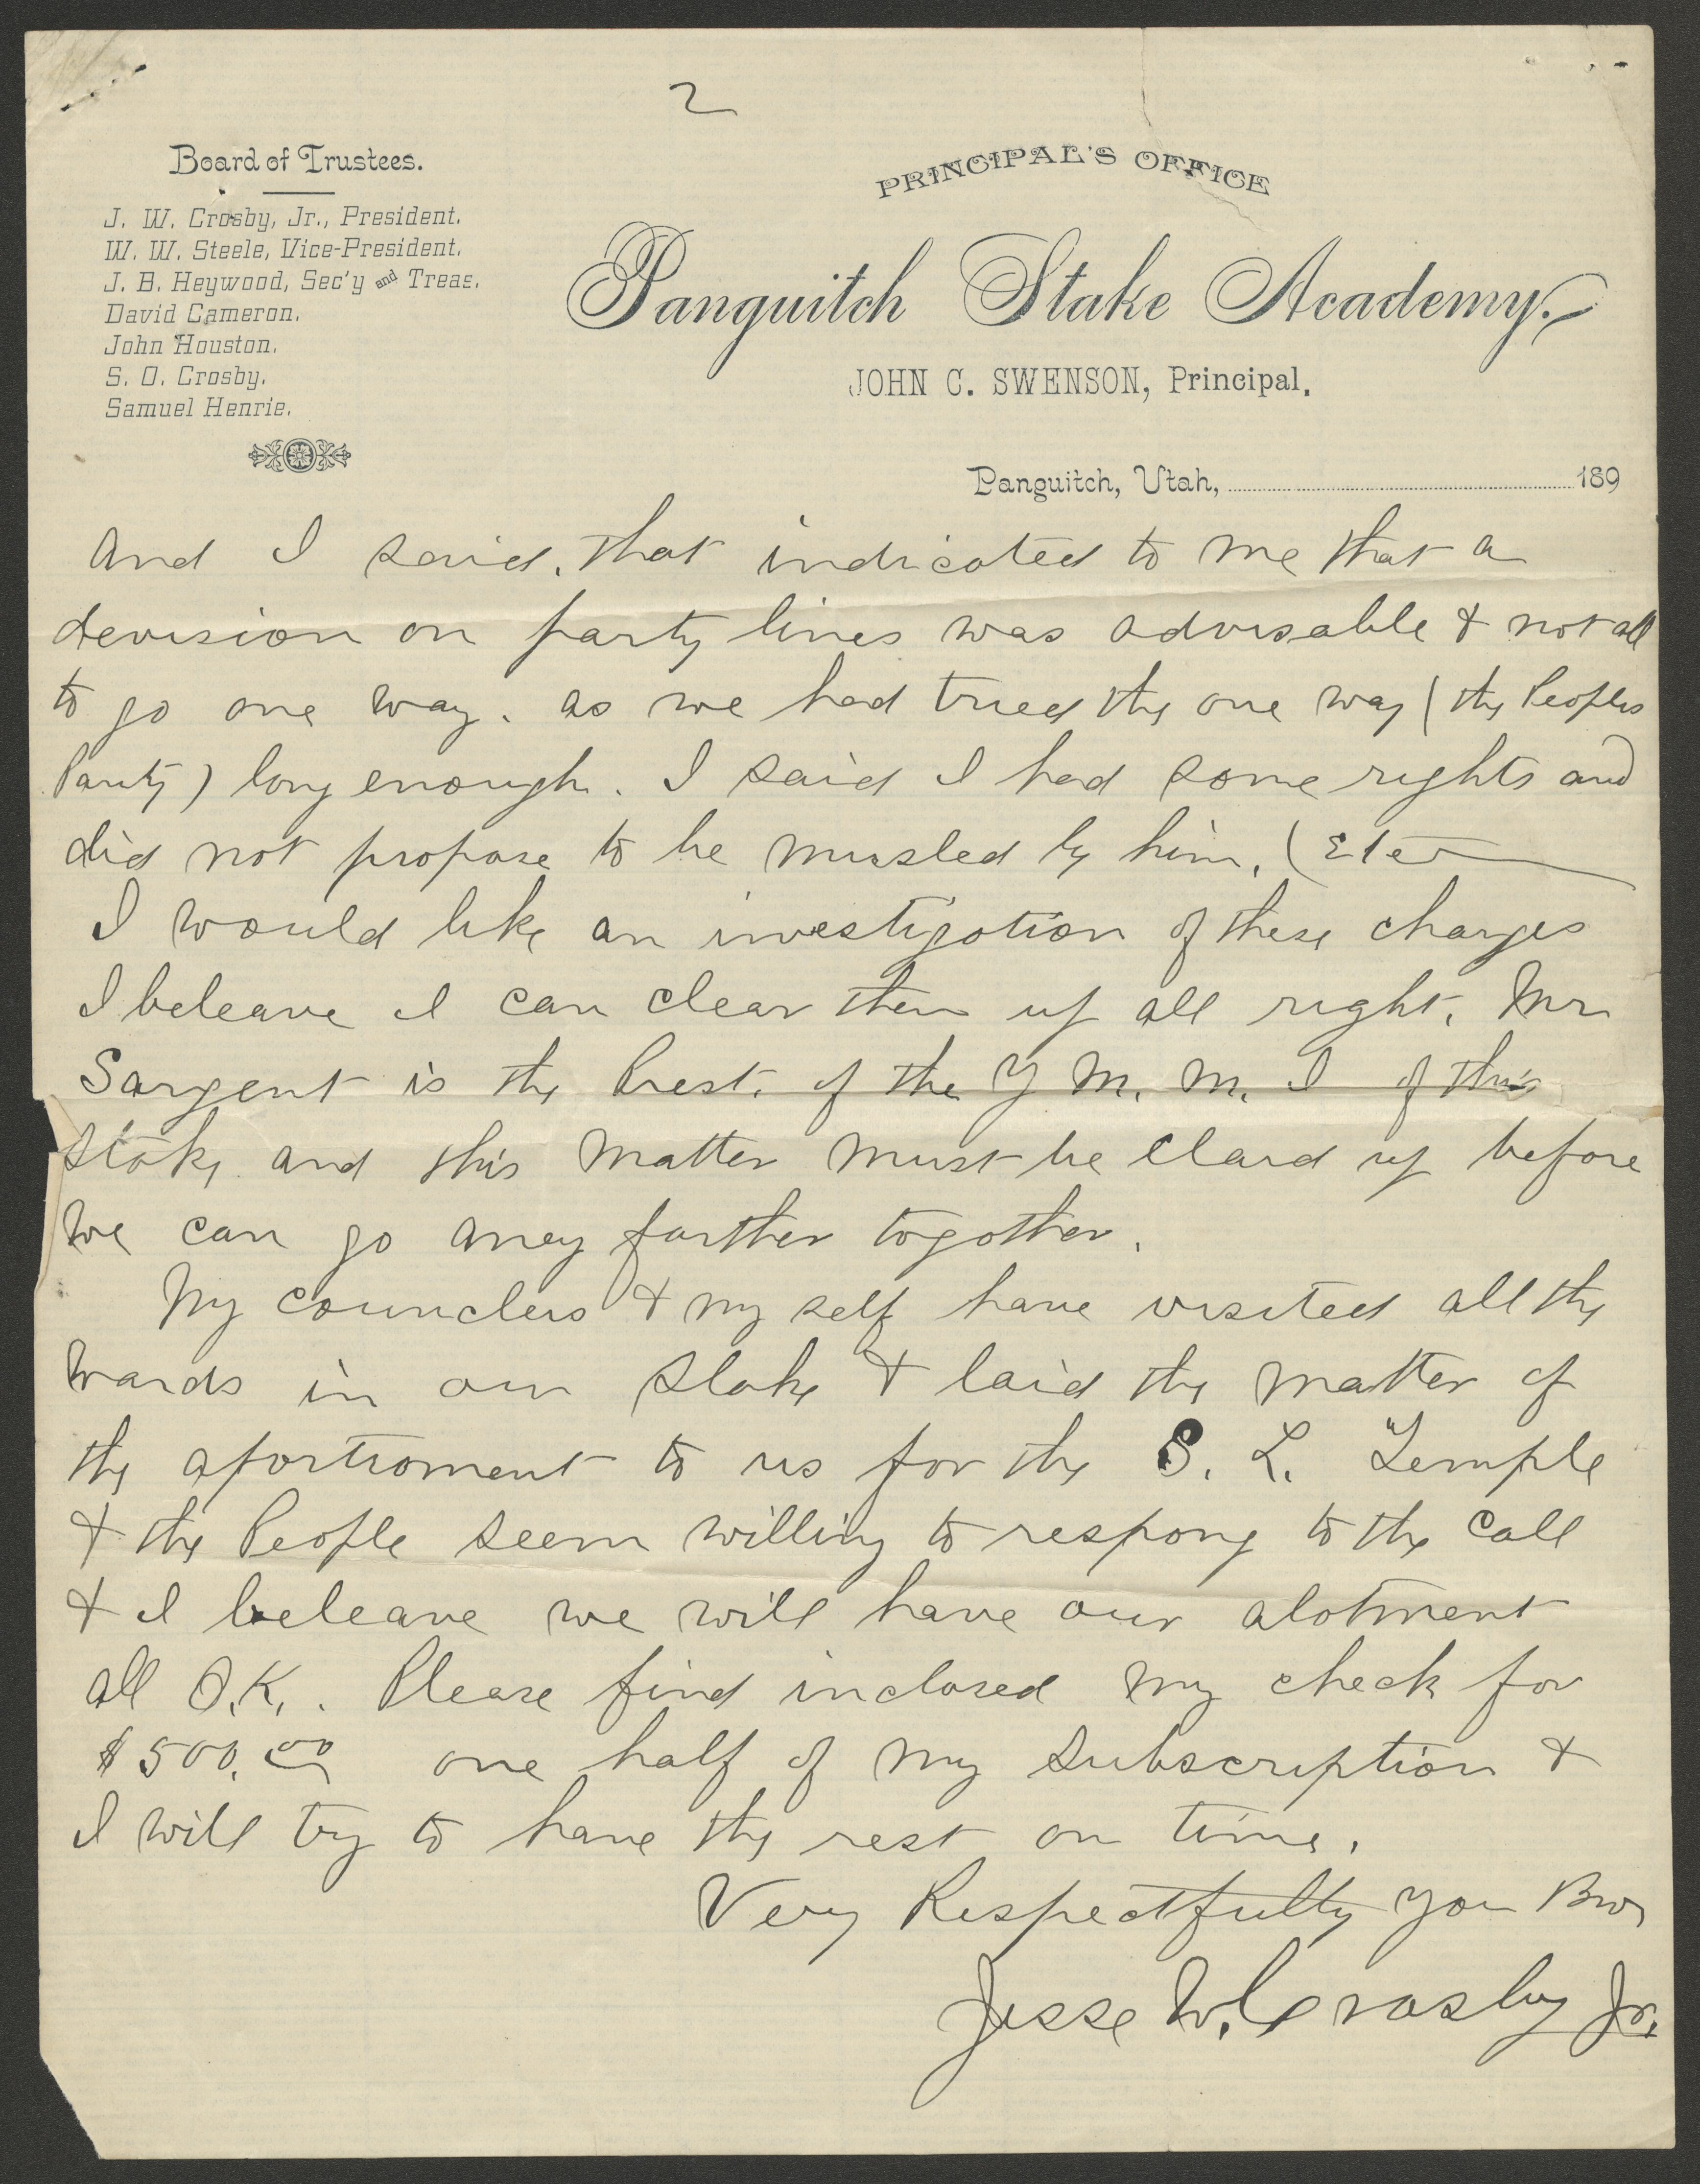 2
Board of Trustees.
J. W. Crosby, Jr., President.
W. W. Steele, Vice-President.
J. B. Heywood, Sec'y and Treas.
David Cameron.
John Houston.
S. O. Crosby.
Samuel Henrie.
PRINCIPAL'S OFFICE
Panguitch Stake Academy.
JOHN C. SWENSON, Principal.
Panguitch, Utah, 189
And I said, that indicated to me that a
devision on party lines was advisable & not all
to go one way. as we had tried the one way (the Peoples
Party) long enough. I said I had some rights and
did not propose to be musled by him. (Etc
I would like an investigation of these charges
I beleave I can clear them up all right. Mr
Sargent is the Prest. of the Y M. M. I of this
Stake and this matter must be Clard up before
we can go aney farther togother.
My Counclers & my self have visited all the
wards in our Stake & laid the matter of
the aportioment to us for the S. L. Temple
& the People seem willing to respong to the Call
& I beleave we will have our alotment
all O.K.. Please find inclosed my check for
$500.00 one half of my subscription &
I will try to have the rest on time.
Very Respectfully Your Bro,
Jesse W. Crosby Jr.